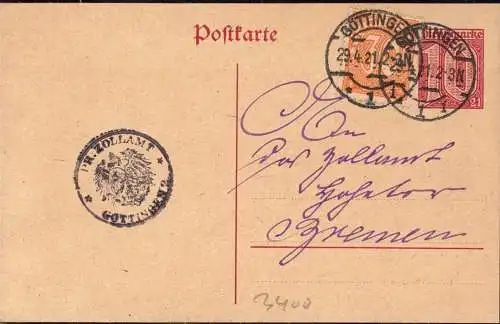 Postkarte
GÖTTINGEN
29.4.21.2-3N.
* 1 *
GÖTTINGEN
21.2-3N
1
10
21
PR. ZOLLAMT
* GÖTTINGEN *
An
das Zollamt
Hohetor
Bremen
3400